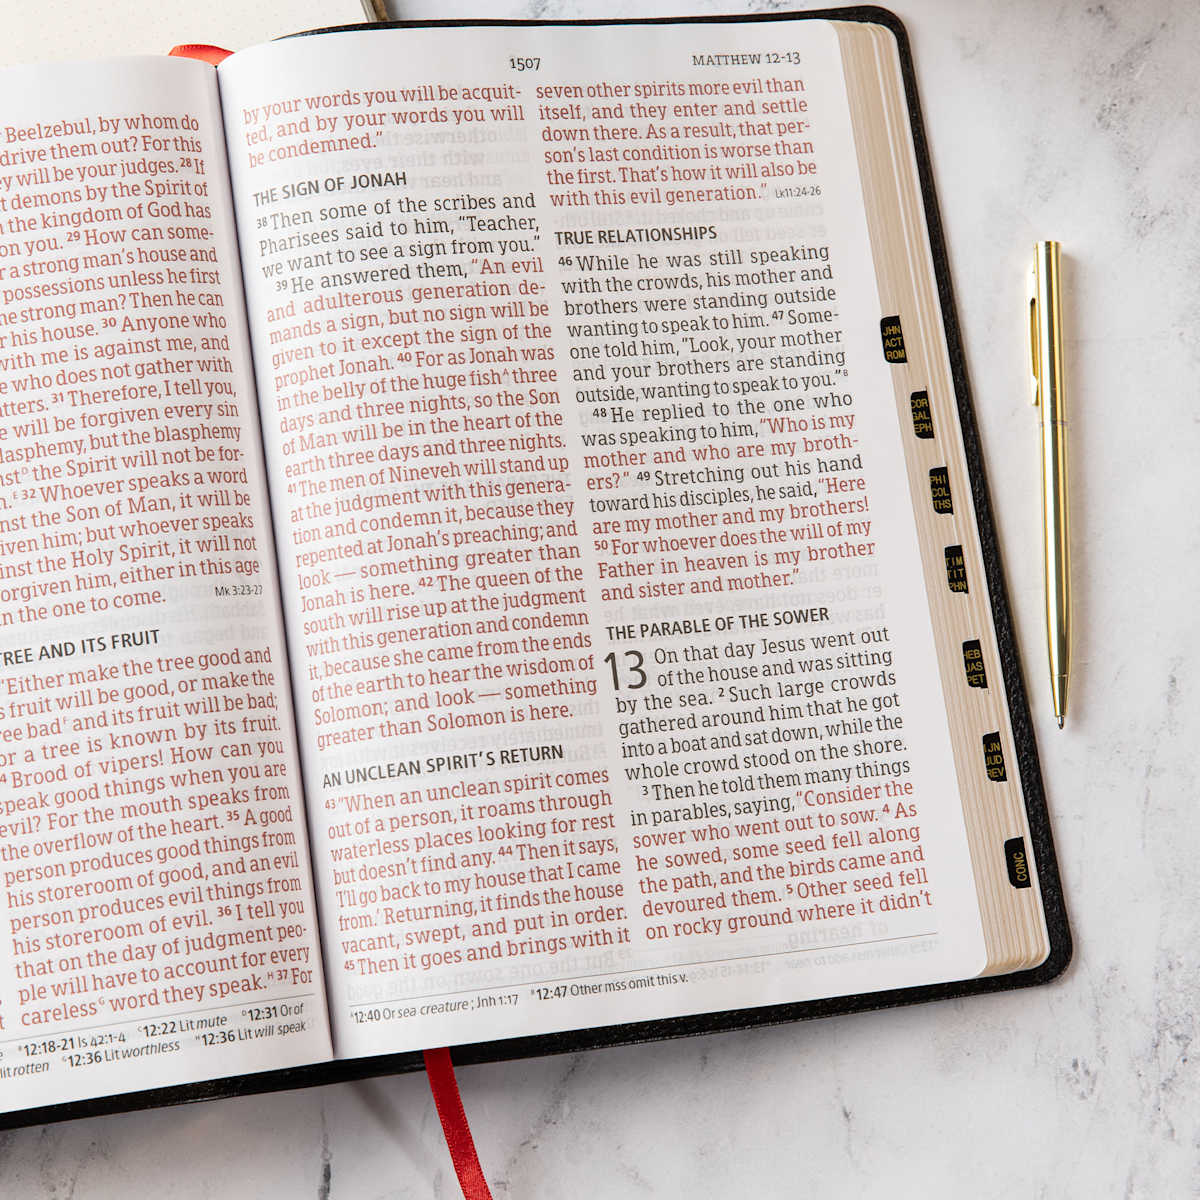 Beelzebul, by whom do
drive them out? For this
will be your judges. 28 If
demons by the Spirit of
the kingdom of God has
on you. 29 How can some-
a strong man's house and
possessions unless he first
strong man? Then he can
his house. 30 Anyone who
with me is against me, and
who does not gather with
31 Therefore, I tell you,
will be forgiven every sin
but the blasphemy
the Spirit will not be for-
E 32 Whoever speaks a word
the Son of Man, it will be
him; but whoever speaks
the Holy Spirit, it will not
either in this age
in the one to come. Mk 3:23-27
TREE AND ITS FRUIT
"Either make the tree good and
fruit will be good, or make the
bad F and its fruit will be bad;
for a tree is known by its fruit.
Brood of vipers! How can you
speak good things when you are
evil? For the mouth speaks from
the overflow of the heart. 35 A good
person produces good things from
his storeroom of good, and an evil
person produces evil things from
his storeroom of evil. 36 I tell you
that on the day of judgment peo-
ple will have to account for every
careless G word they speak. H 37 For
12:18-21 Is 42:1-4 C 12:22 Lit mute D 12:31 Or of
Lit rotten G 12:36 Lit worthless H 12:36 Lit will speak
1507 MATTHEW 12-13
by your words you will be acquit-
ted, and by your words you will
be condemned."
THE SIGN OF JONAH
38 Then some of the scribes and
Pharisees said to him, "Teacher,
we want to see a sign from you."
39 He answered them, "An evil
and adulterous generation de-
mands a sign, but no sign will be
given to it except the sign of the
prophet Jonah. 40 For as Jonah was
in the belly of the huge fish A three
days and three nights, so the Son
of Man will be in the heart of the
earth three days and three nights.
41 The men of Nineveh will stand up
at the judgment with this genera-
tion and condemn it, because they
repented at Jonah's preaching; and
look — something greater than
Jonah is here. 42 The queen of the
south will rise up at the judgment
with this generation and condemn
it, because she came from the ends
of the earth to hear the wisdom of
Solomon; and look — something
greater than Solomon is here.
AN UNCLEAN SPIRIT'S RETURN
43 "When an unclean spirit comes
out of a person, it roams through
waterless places looking for rest
but doesn't find any. 44 Then it says,
'I'll go back to my house that I came
from.' Returning, it finds the house
vacant, swept, and put in order.
45 Then it goes and brings with it
seven other spirits more evil than
itself, and they enter and settle
down there. As a result, that per-
son's last condition is worse than
the first. That's how it will also be
with this evil generation." Lk 11:24-26
TRUE RELATIONSHIPS
46 While he was still speaking
with the crowds, his mother and
brothers were standing outside
wanting to speak to him. 47 Some-
one told him, "Look, your mother
and your brothers are standing
outside, wanting to speak to you." B
48 He replied to the one who
was speaking to him, "Who is my
mother and who are my broth-
ers?" 49 Stretching out his hand
toward his disciples, he said, "Here
are my mother and my brothers!
50 For whoever does the will of my
Father in heaven is my brother
and sister and mother."
THE PARABLE OF THE SOWER
13 On that day Jesus went out
of the house and was sitting
by the sea. 2 Such large crowds
gathered around him that he got
into a boat and sat down, while the
whole crowd stood on the shore.
3 Then he told them many things
in parables, saying, "Consider the
sower who went out to sow. 4 As
he sowed, some seed fell along
the path, and the birds came and
devoured them. 5 Other seed fell
on rocky ground where it didn't
A 12:40 Or sea creature; Jnh 1:17 B 12:47 Other mss omit this v.
JHN
ACT
ROM
COR
GAL
EPH
PHI
COL
THS
TIM
TIT
PHN
HEB
JAS
PET
1JN
JUD
REV
CONC